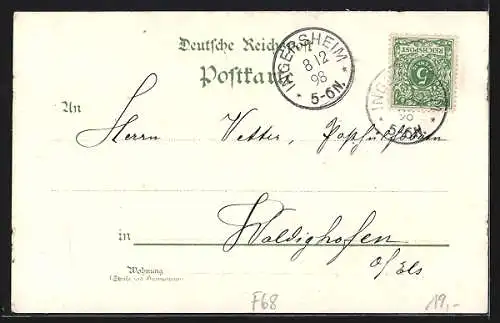 Deutsche Reichspost
Postkarte
INGERSHEIM
8 12
98
* 5-6N. *
REICHSPOST
5
98
5-6N.
An
Herrn Vetter,
in Waldighofen
o/Els
Wohnung
(Straße und Hausnummer)
F68
19,-